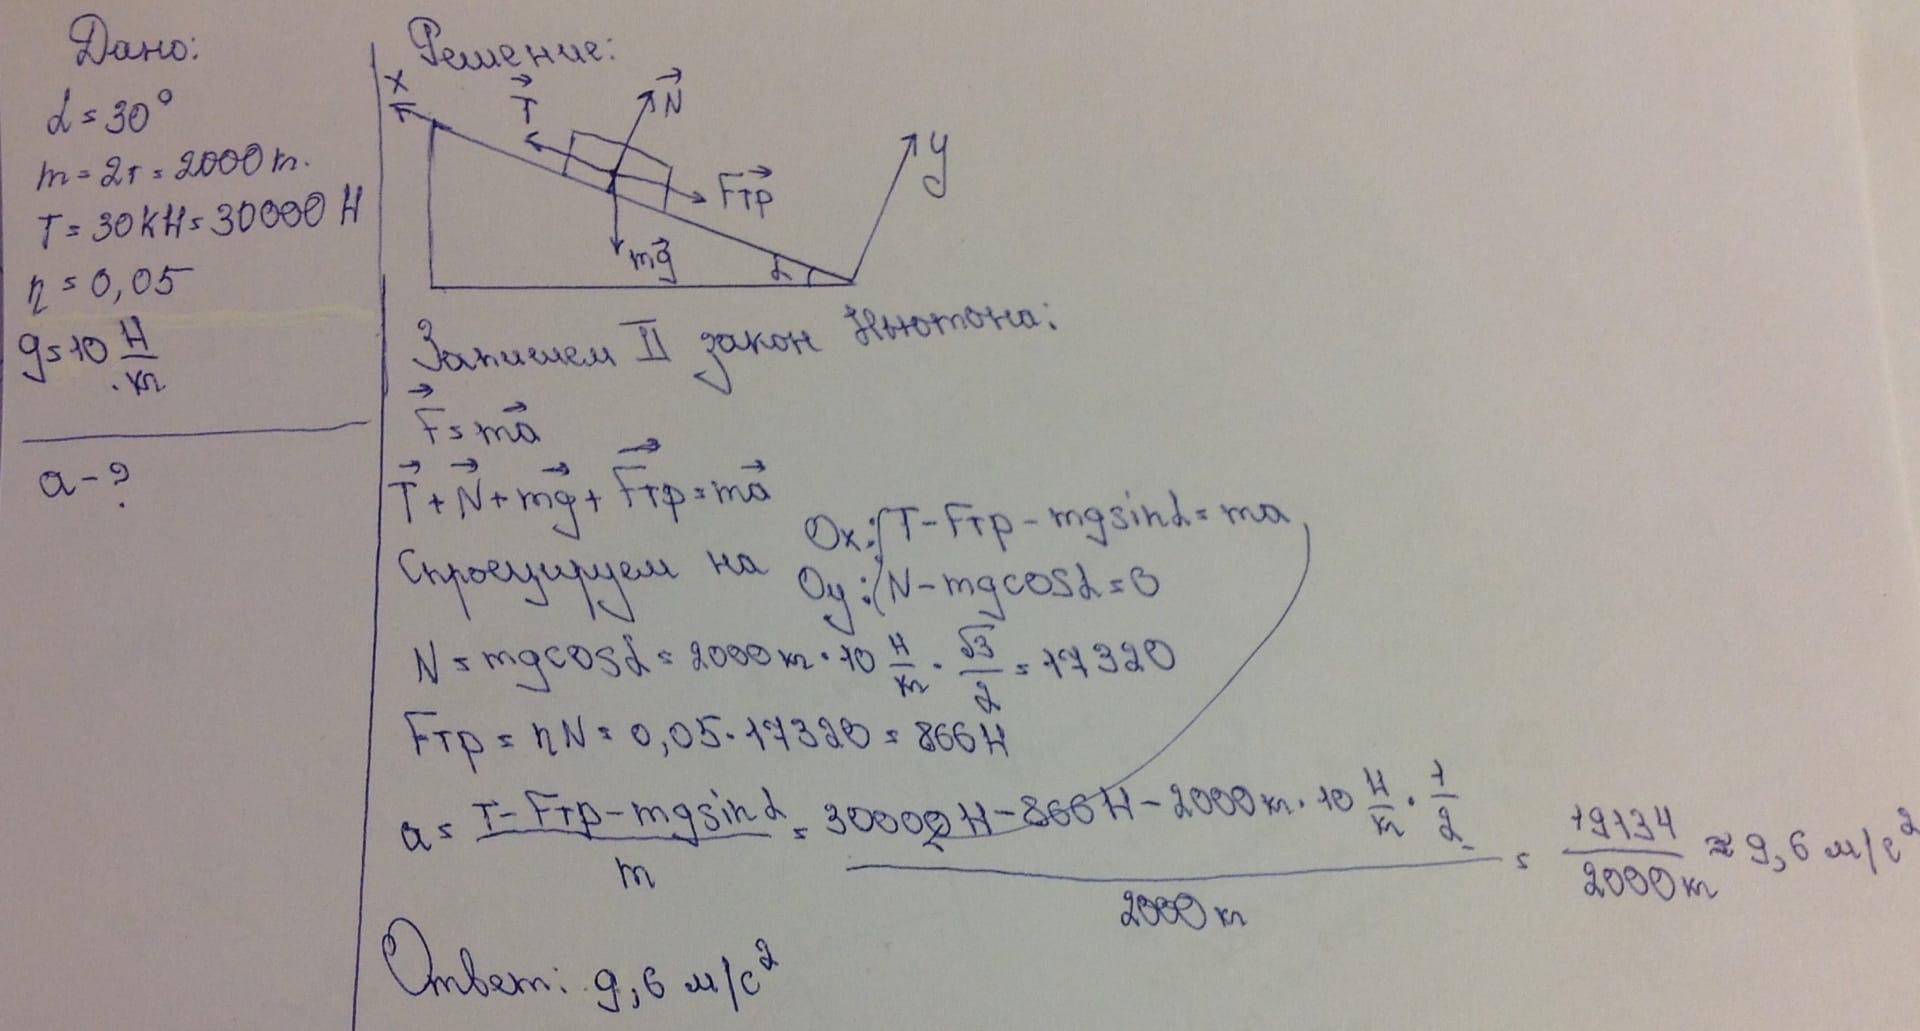 Дано:
α = 30°
m = 2т = 2000кг.
T = 30кН = 30000 Н
η = 0,05
g = 10 Н/кг
a - ?
Решение:
x
T
N
y
Fтр
mg
α
Запишем II закон Ньютона:
F = ma
T + N + mg + Fтр = ma
Спроецируем на
Ox: T - Fтр - mgsinα = ma
Oy: N - mgcosα = 0
N = mgcosα = 2000кг · 10 Н/кг · √3/2 = 17320
Fтр = ηN = 0,05 · 17320 = 866Н
a = (T - Fтр - mgsinα)/m = (30000Н - 866Н - 2000кг · 10 Н/кг · 1/2)/2000кг = 19134/2000кг ≈ 9,6 м/с²
Ответ: 9,6 м/с²